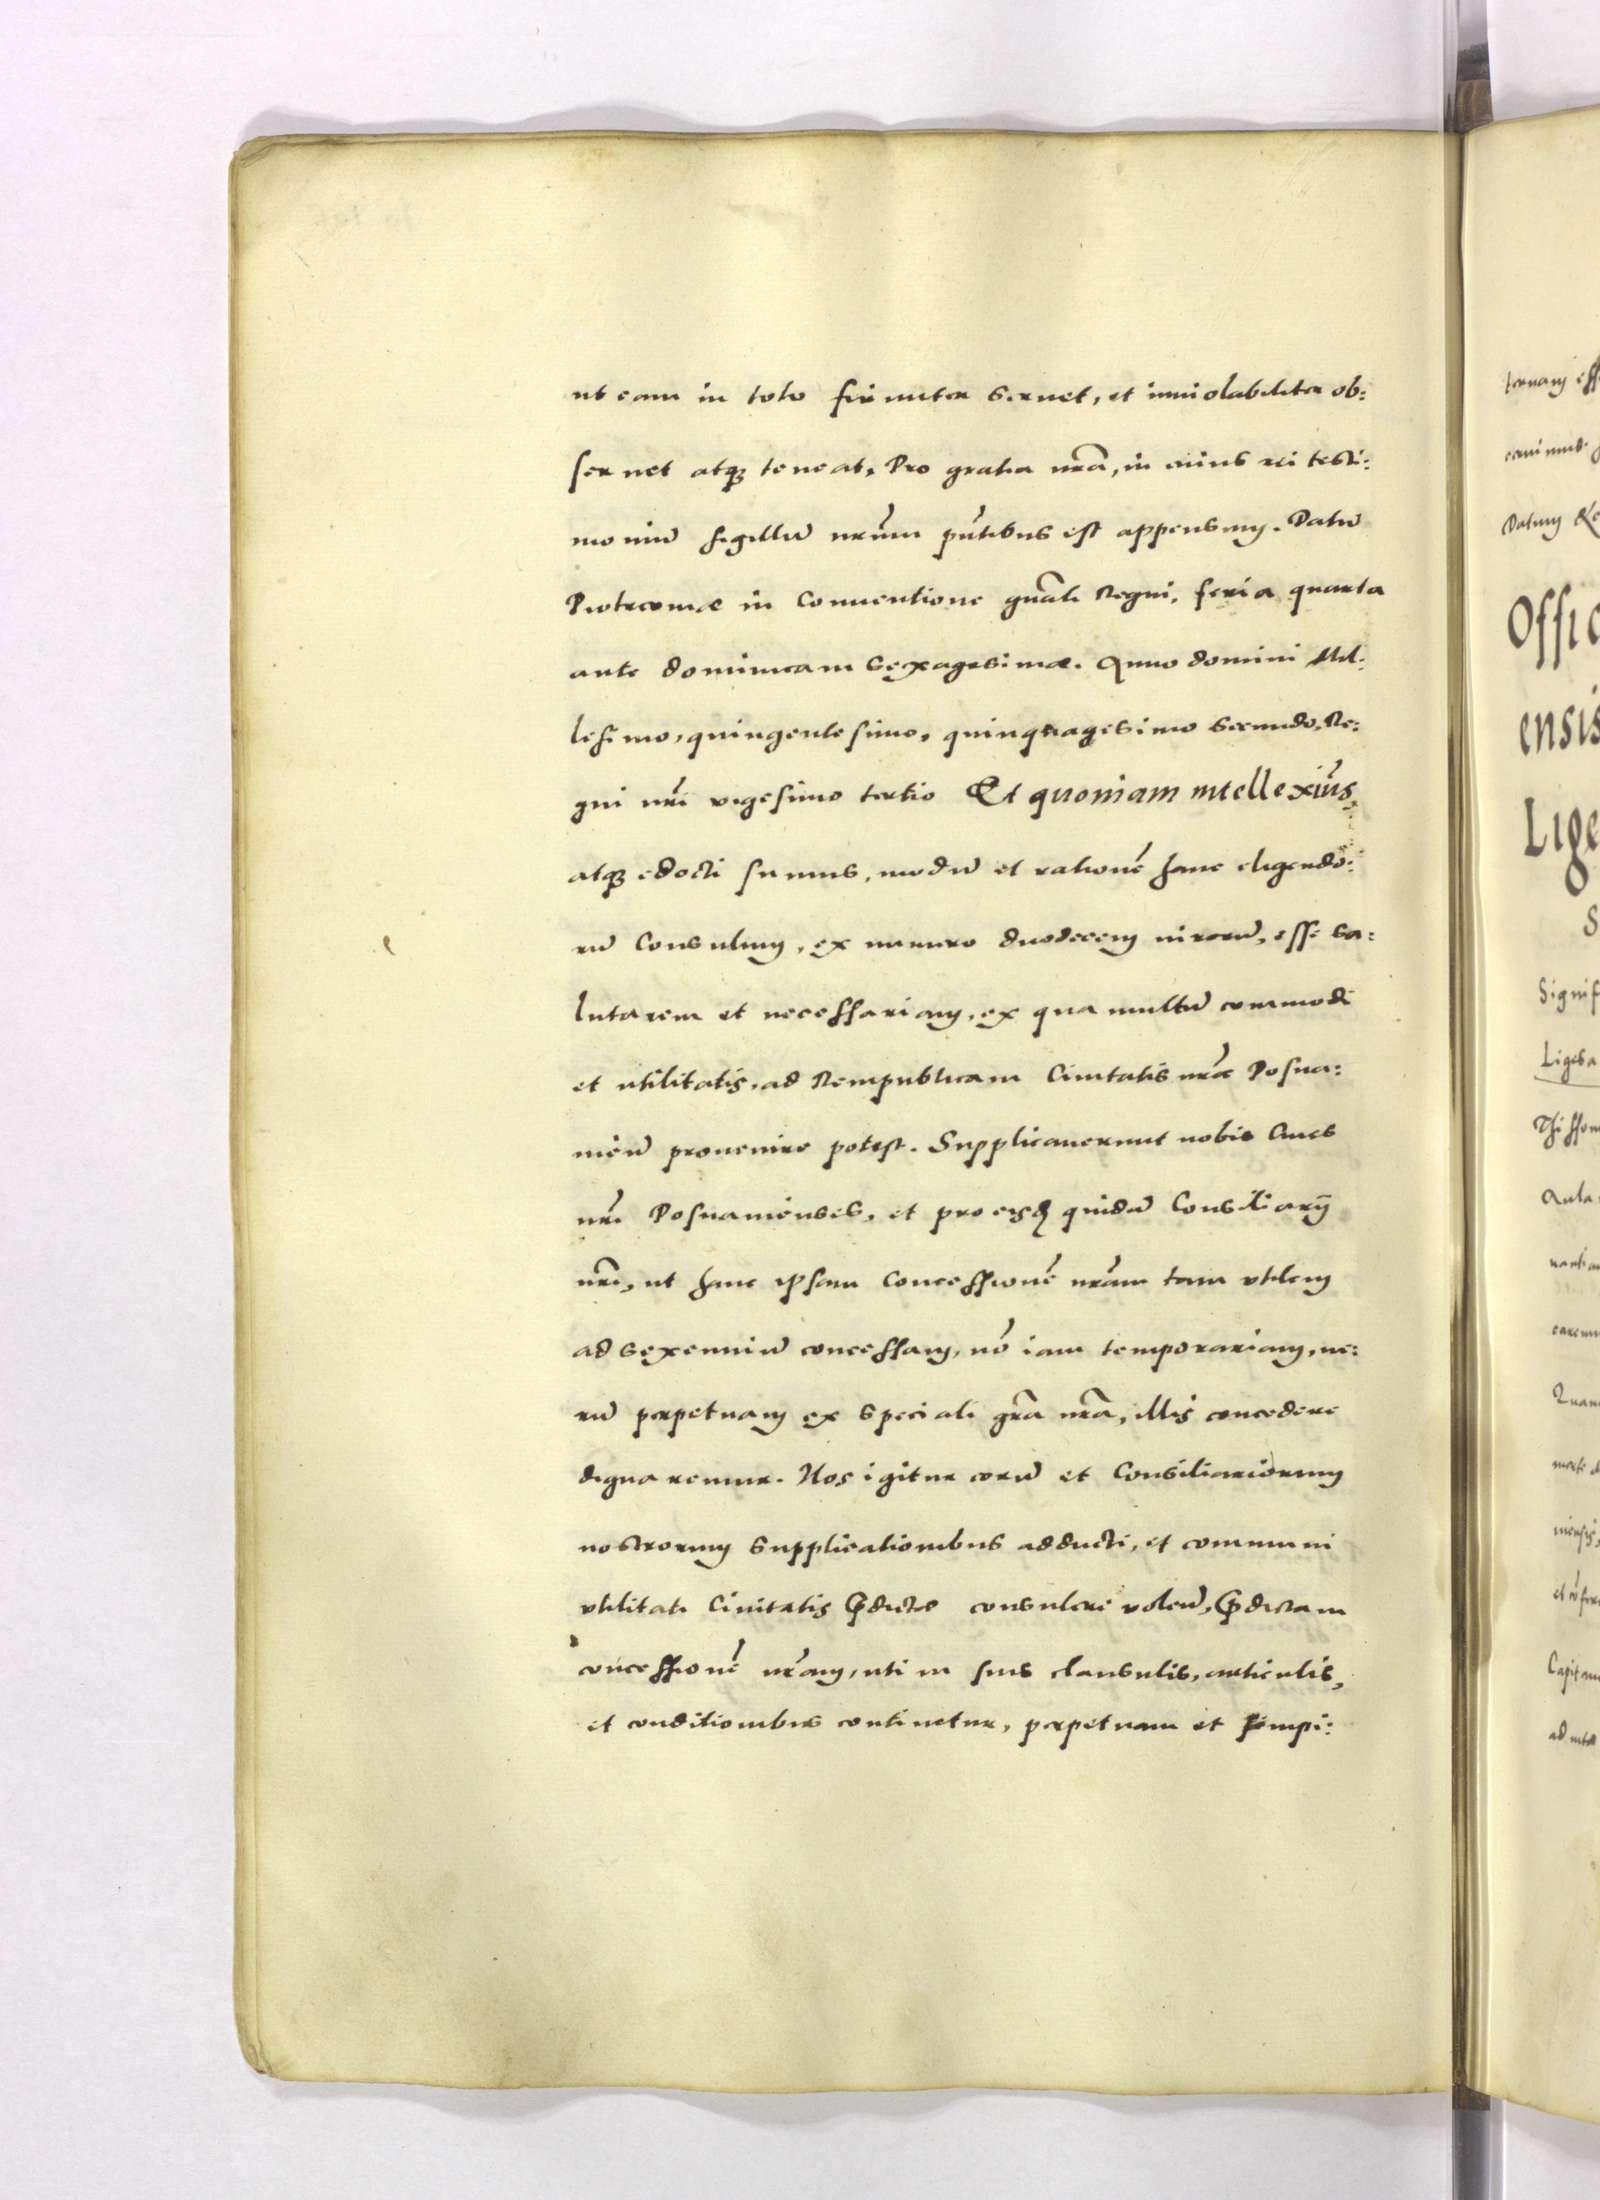 ut eam in toto firmiter seruet, et inuiolabiliter ob:
seruet atq₃ teneat, Pro gratia nrã, in cuius rei testi:
moniũ sigillũ nr̃um pñtibus est appensum. Datũ
Piotrcouiæ in Conuentione gñali Regni, feria quarta
ante dominicam sexagesimæ. Anno domini Mil:
lesimo, quingentesimo, quinquagesimo secundo, Re:
gni nrĩ vigesimo tertio Et quoniam intelleximũs,
atq₃ edocti sumus, modũ et rationẽ hanc eligendo:
rũ Consulum, ex numero duodecem uirorũ, esse sa:
lutarem et necessariam, ex qua multũ commodi
et utilitatis, ad Rempublicam Ciuitatis nrẽ Posna:
nieñ prouenire potest. Supplicauerunt nobis Ciues
nrĩ Posnanienses, et pro eisd̃ quidã Consiliarij
nrĩ, ut hanc ipsam Concessionẽ nrãm tam vtilem
ad sexenniũ concessam, nõ iam temporariam, ue:
rũ perpetuam ex speciali grã nrã, illis concedere
dignaremur. Nos igitur eorũ et Consiliariorum
nostrorum supplicationibus adducti, et communi
vtilitati Ciuitatis p̃dictæ consulere voleñ, p̃dictam
concessionẽ nrãm, uti in suis clausulis, articulis,
et conditionibus continetur, perpetuam et sempi:
ternam
Datum
Offic
ensis
Lige
S
Signif
Ligeza
Aula
Quam
Capitan